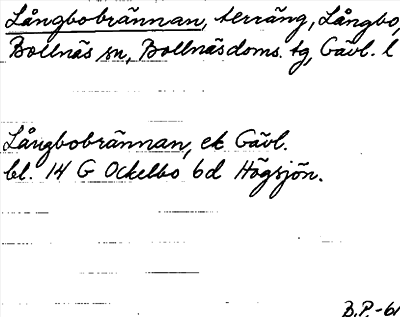 Långbobrännan, terräng, Långbo,
Bollnäs sn, Bollnäs doms. tg, Gävl. l
Långbobrännan, ek Gävl.
bl. 14 G Ockelbo 6d Högsjön.
B.P.-61